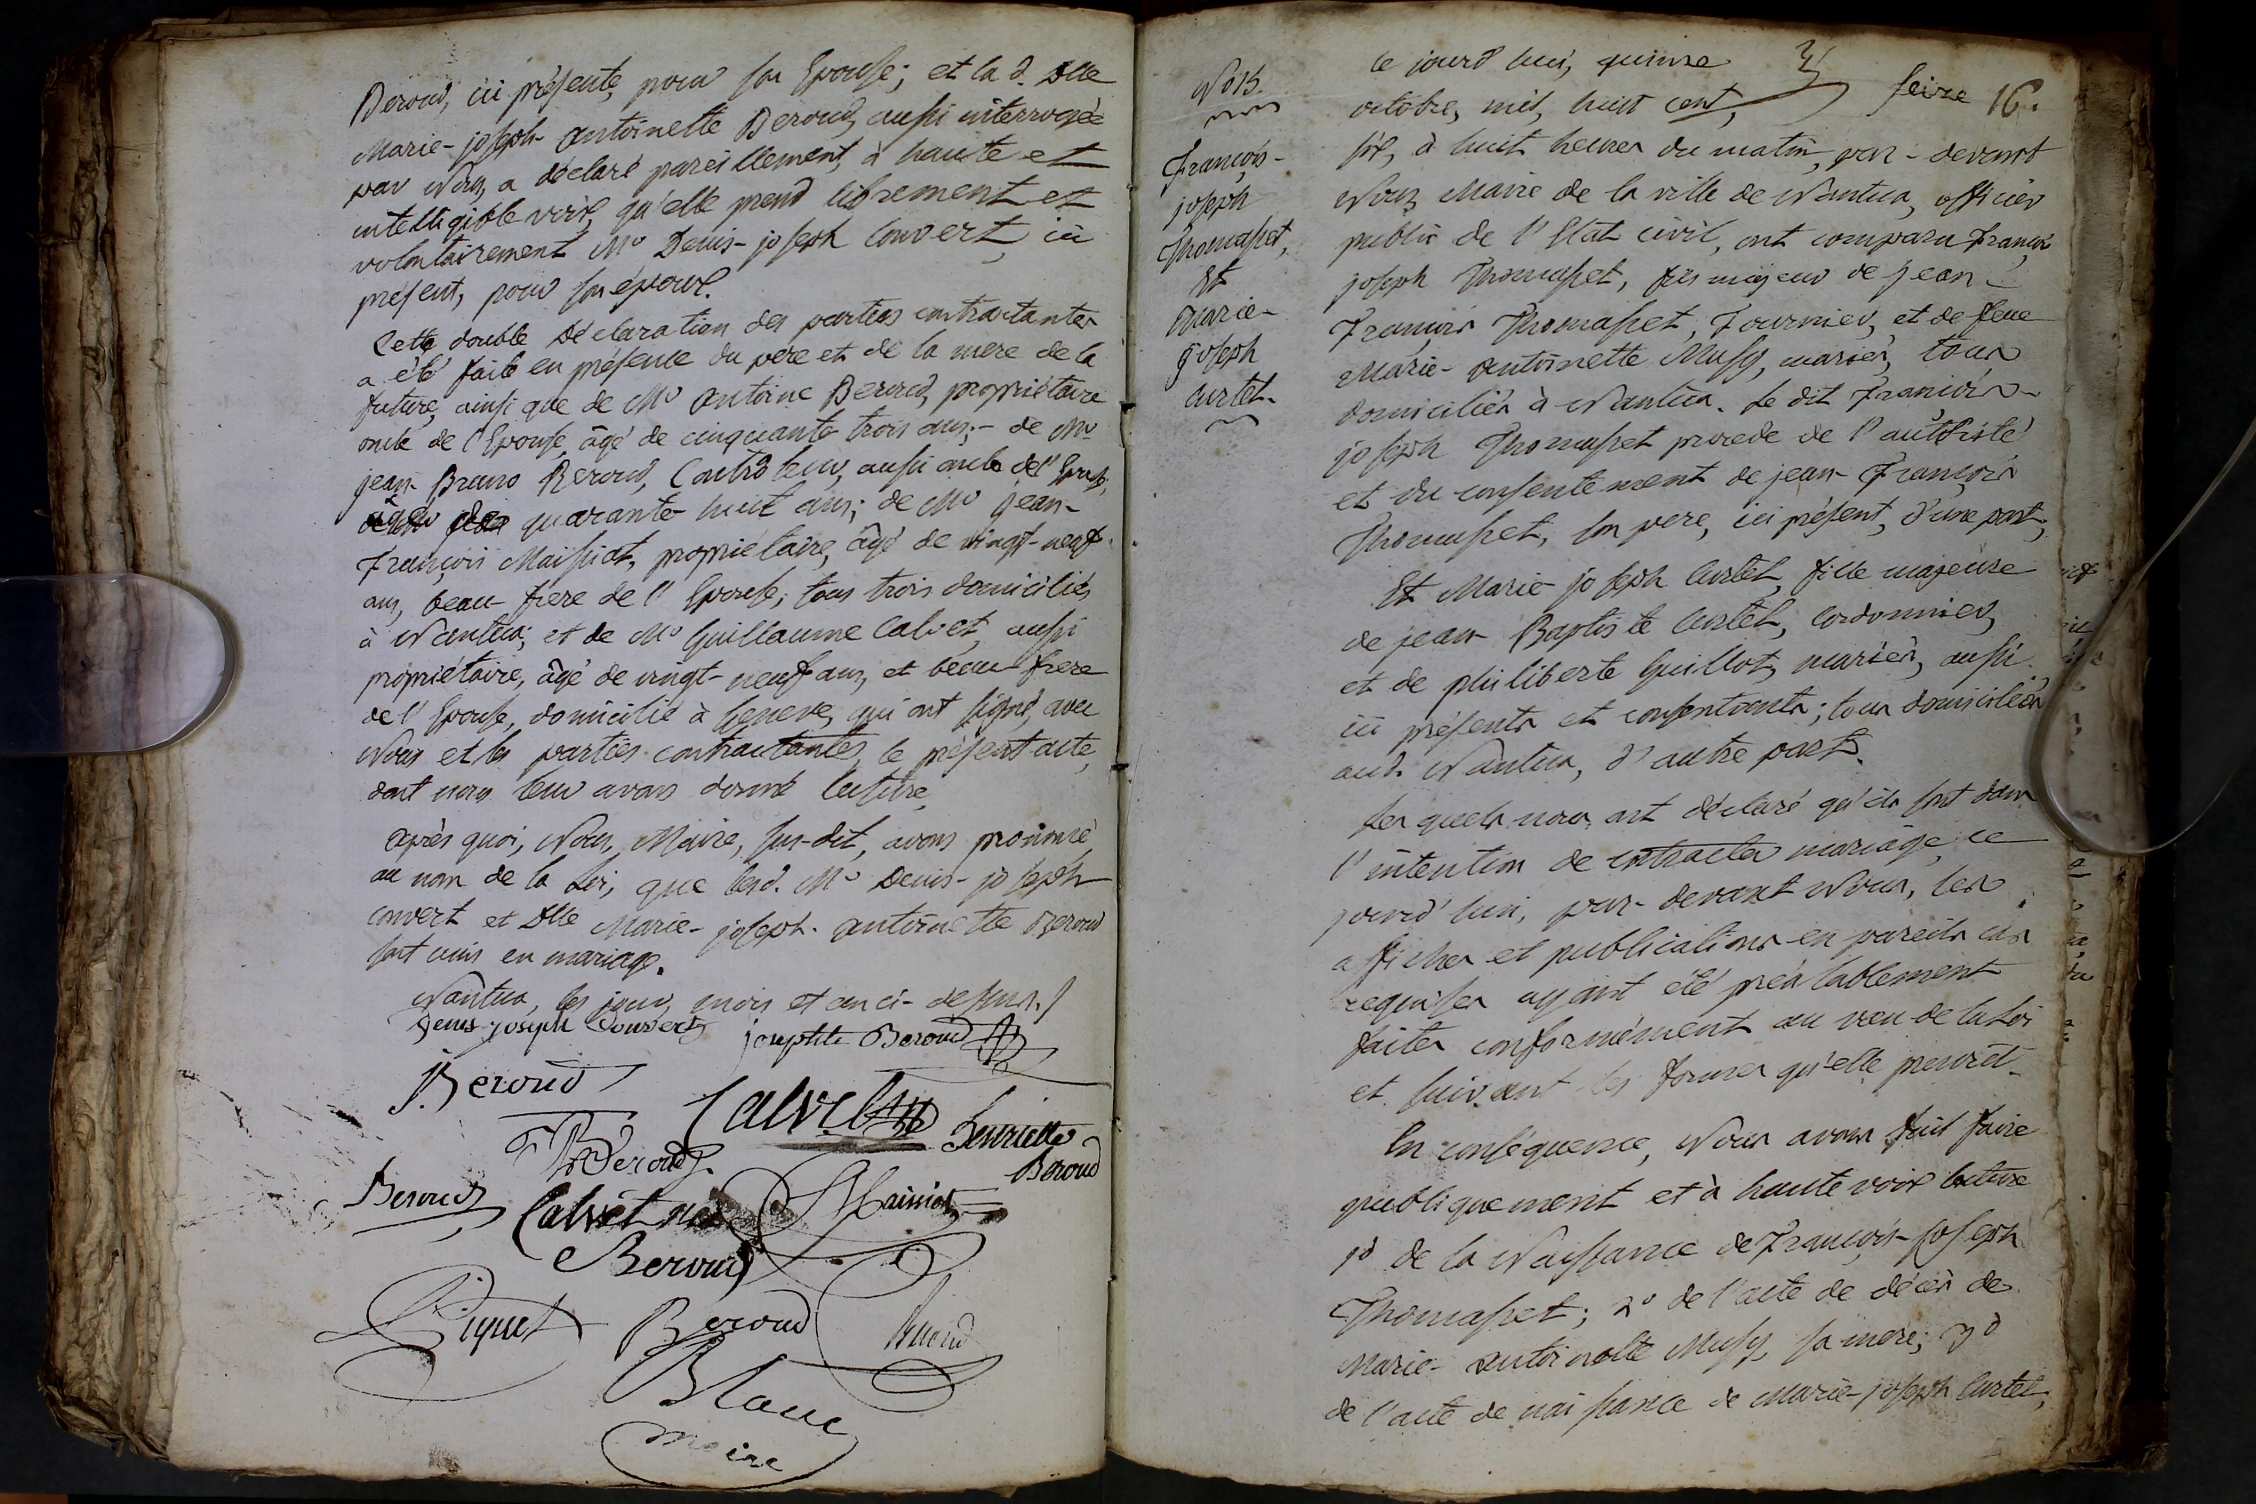 Beroud, ici présente, pour son Epouse; et la d. Dlle
Marie-joseph-antoinette Beroud, aussi interrogée
par Nous, a déclaré pareillement, à haute et
intelligible voix, qu'elle prend librement et
volontairement Mr Denis-joseph Convert, ici
présent, pour son époux.
Cette double Déclaration des parties contractantes
a été faite en présence du pere et de la mere de la
future, ainsi que de Mr antoine Beroud, propriétaire
oncle de l'Epouse, âgé de cinquante trois ans;- de Mr
jean-Bruno Beroud, Controleur, aussi oncle de l'Epouse,
âgé de quarante huit ans; de Mr jean-
françois Maissiat, propriétaire, âgé de vingt-neuf
ans, beau-frere de l'Epouse; tous trois domiciliés
à Nantua; et de Mr Guillaume Calvet, aussi
propriétaire, âgé de vingt-neuf ans, et beau frere
de l'Epouse, domicilié à Geneve, qui ont signé, avec
Nous et les parties contractantes, le présent acte,
dont nous leur avons donné lecture.
après quoi, Nous, Maire, sus-dit, avons prononcé,
au nom de la Loi, que lesd. Mr Denis-joseph
convert et Dlle Marie-joseph-antoinette Beroud
sont unis en mariage.
Nantua, les jour, mois et an ci-dessus./
Denis joseph Convert
josephte Beroud
J. Beroud
Calvet
Beroud
henriette
Beroud
Beroud
Calvet née
Maissiat
Beroud
Piquet
Beroud
Blanc
maire
No 15.
François-
joseph
Thomasset,
Et
Marie-
joseph
Curtet.
seize 16.
Ce jourd'hui, quinze
octobre, mil, huit cent,
six, à huit heures du matin, par-devant
Nous Maire de la ville de Nantua, officier
public de l'Etat civil, ont comparu François
joseph Thomasset, fils majeur de jean-
François Thomasset, Fournier, et de feue
Marie-antoinette Mussy, mariés, tous
domiciliés à Nantua. Le dit François-
joseph Thomasset procede de l'authorité
et du consentement de jean-François
Thomasset, son pere, ici présent, d'une part;
Et Marie-joseph Curtet, fille majeure
de jean-Baptiste Curtet, Cordonnier,
et de philiberte Guillot, mariés, aussi
ici présents et consentants; tous domiciliés
aud. Nantua, d'autre part.
Lesquels nous ont déclaré qu'ils sont dans
l'intention de contracter mariage, ce
jourd'hui, par-devant Nous, les
affiches et publications en pareils cas
requises ayant été préalablement
faites conformément au vœu de la Loi
et suivant les formes qu'elle prescrit.
En conséquence, Nous avons fait faire
publiquement et à haute voix lecture
1º de la Naissance de François-Joseph
Thomasset; 2º de l'acte de décès de
Marie-antoinette Mussy, sa mere; 3º
de l'acte de naissance de Marie-joseph Curtet,